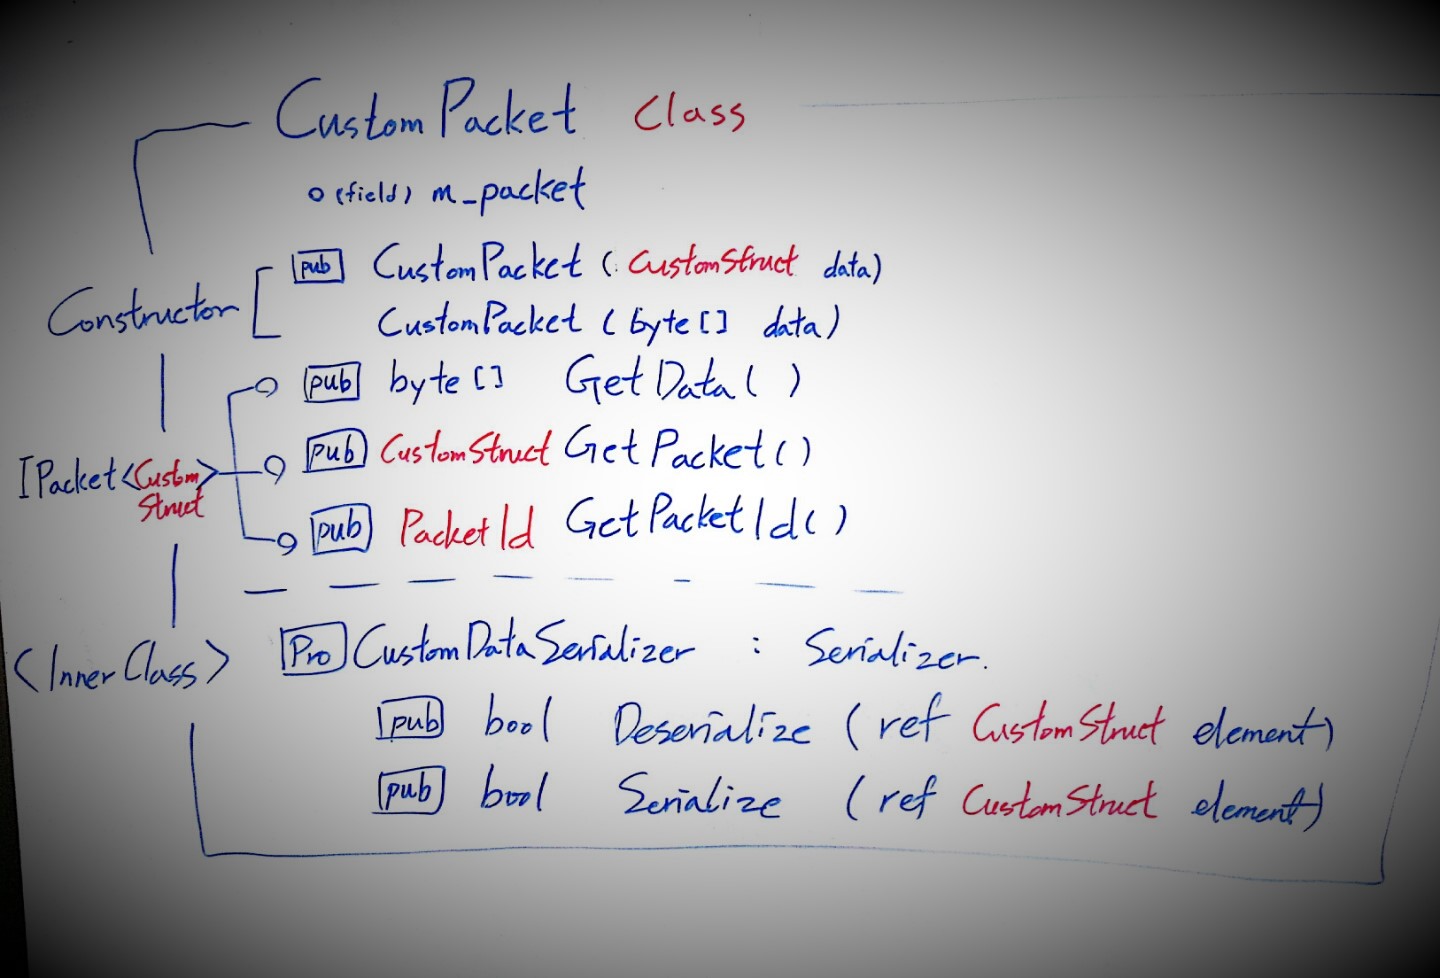 CustomPacket Class
o (field) m_packet
Constructor
pub CustomPacket (CustomStruct data)
CustomPacket (byte[] data)
pub byte[] GetData()
IPacket<Custom
Struct>
pub CustomStruct GetPacket()
pub PacketId GetPacketId()
<InnerClass>
Pro CustomDataSerializer : Serializer.
pub bool Deserialize (ref CustomStruct element)
pub bool Serialize (ref CustomStruct element)